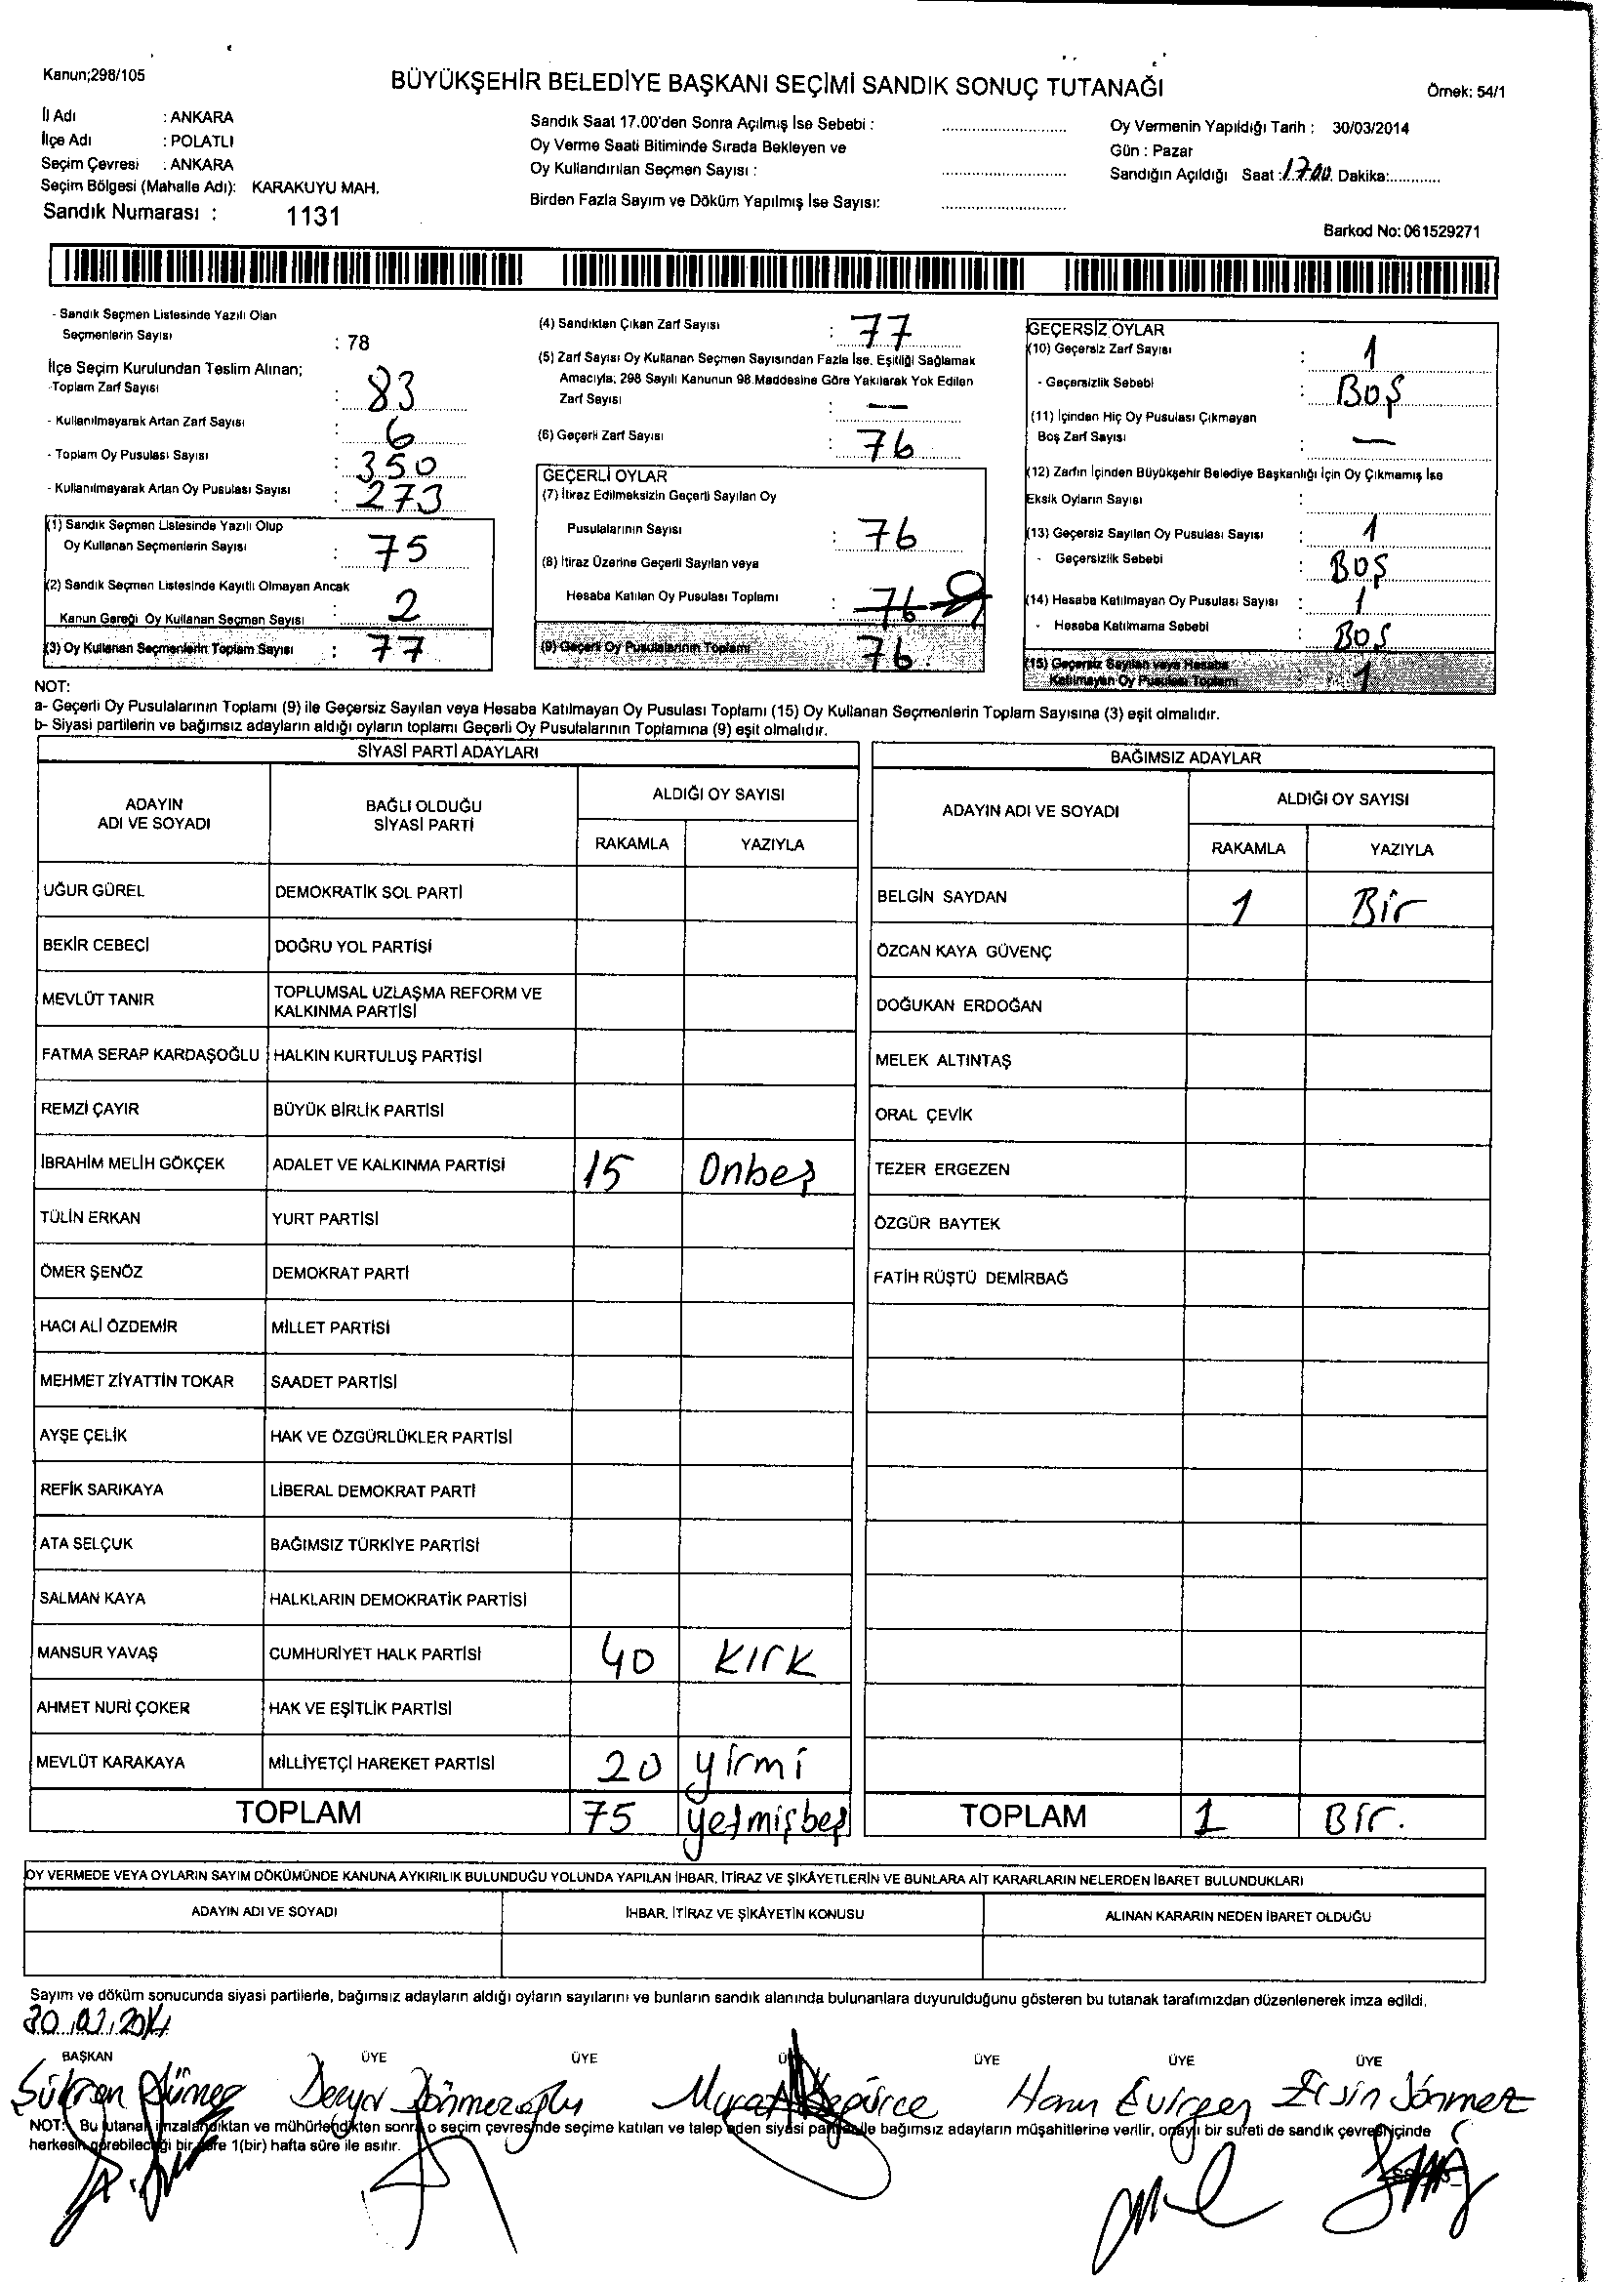 Kanun;298/105
BÜYÜKŞEHİR BELEDİYE BAŞKANI SEÇİMİ SANDIK SONUÇ TUTANAĞI
Örnek: 54/1
İl Adı : ANKARA
İlçe Adı : POLATLI
Seçim Çevresi : ANKARA
Seçim Bölgesi (Mahalle Adı): KARAKUYU MAH.
Sandık Numarası : 1131
Sandık Saat 17.00'den Sonra Açılmış İse Sebebi :
Oy Verme Saati Bitiminde Sırada Bekleyen ve
Oy Kullandırılan Seçmen Sayısı :
Birden Fazla Sayım ve Döküm Yapılmış İse Sayısı:
Oy Vermenin Yapıldığı Tarih : 30/03/2014
Gün : Pazar
Sandığın Açıldığı Saat : 17.00 Dakika:
Barkod No: 061529271
- Sandık Seçmen Listesinde Yazılı Olan
Seçmenlerin Sayısı : 78
İlçe Seçim Kurulundan Teslim Alınan;
-Toplam Zarf Sayısı : 83
- Kullanılmayarak Artan Zarf Sayısı : 6
- Toplam Oy Pusulası Sayısı : 350
- Kullanılmayarak Artan Oy Pusulası Sayısı : 273
(1) Sandık Seçmen Listesinde Yazılı Olup
Oy Kullanan Seçmenlerin Sayısı : 75
(2) Sandık Seçmen Listesinde Kayıtlı Olmayan Ancak
Kanun Gereği Oy Kullanan Seçmen Sayısı : 2
(3) Oy Kullanan Seçmenlerin Toplam Sayısı : 77
(4) Sandıktan Çıkan Zarf Sayısı : 77
(5) Zarf Sayısı Oy Kullanan Seçmen Sayısından Fazla İse, Eşitliği Sağlamak
Amacıyla; 298 Sayılı Kanunun 98.Maddesine Göre Yakılarak Yok Edilen
Zarf Sayısı : —
(6) Geçerli Zarf Sayısı : 76
GEÇERLİ OYLAR
(7) İtiraz Edilmeksizin Geçerli Sayılan Oy
Pusulalarının Sayısı : 76
(8) İtiraz Üzerine Geçerli Sayılan veya
Hesaba Katılan Oy Pusulası Toplamı : 76
(9) Geçerli Oy Pusulalarının Toplamı 76.
GEÇERSİZ OYLAR
(10) Geçersiz Zarf Sayısı : 1
- Geçersizlik Sebebi : BOŞ
(11) İçinden Hiç Oy Pusulası Çıkmayan
Boş Zarf Sayısı : —
(12) Zarfın İçinden Büyükşehir Belediye Başkanlığı İçin Oy Çıkmamış İse
Eksik Oyların Sayısı :
(13) Geçersiz Sayılan Oy Pusulası Sayısı : 1
- Geçersizlik Sebebi : BOŞ
(14) Hesaba Katılmayan Oy Pusulası Sayısı : 1
- Hesaba Katılmama Sebebi : BOŞ
(15) Geçersiz Sayılan veya Hesaba
Katılmayan Oy Pusulası Toplamı : 1
NOT:
a- Geçerli Oy Pusulalarının Toplamı (9) ile Geçersiz Sayılan veya Hesaba Katılmayan Oy Pusulası Toplamı (15) Oy Kullanan Seçmenlerin Toplam Sayısına (3) eşit olmalıdır.
b- Siyasi partilerin ve bağımsız adayların aldığı oyların toplamı Geçerli Oy Pusulalarının Toplamına (9) eşit olmalıdır.
SİYASİ PARTİ ADAYLARI
ADAYIN
ADI VE SOYADI
BAĞLI OLDUĞU
SİYASİ PARTİ
ALDIĞI OY SAYISI
RAKAMLA YAZIYLA
UĞUR GÜREL DEMOKRATİK SOL PARTİ
BEKİR CEBECİ DOĞRU YOL PARTİSİ
MEVLÜT TANIR TOPLUMSAL UZLAŞMA REFORM VE
KALKINMA PARTİSİ
FATMA SERAP KARDAŞOĞLU HALKIN KURTULUŞ PARTİSİ
REMZİ ÇAYIR BÜYÜK BİRLİK PARTİSİ
İBRAHİM MELİH GÖKÇEK ADALET VE KALKINMA PARTİSİ 15 Onbeş
TÜLİN ERKAN YURT PARTİSİ
ÖMER ŞENÖZ DEMOKRAT PARTİ
HACI ALİ ÖZDEMİR MİLLET PARTİSİ
MEHMET ZİYATTİN TOKAR SAADET PARTİSİ
AYŞE ÇELİK HAK VE ÖZGÜRLÜKLER PARTİSİ
REFİK SARIKAYA LİBERAL DEMOKRAT PARTİ
ATA SELÇUK BAĞIMSIZ TÜRKİYE PARTİSİ
SALMAN KAYA HALKLARIN DEMOKRATİK PARTİSİ
MANSUR YAVAŞ CUMHURİYET HALK PARTİSİ 40 KIrK
AHMET NURİ ÇOKER HAK VE EŞİTLİK PARTİSİ
MEVLÜT KARAKAYA MİLLİYETÇİ HAREKET PARTİSİ 20 yirmi
TOPLAM 75 yetmişbeş
BAĞIMSIZ ADAYLAR
ADAYIN ADI VE SOYADI
ALDIĞI OY SAYISI
RAKAMLA YAZIYLA
BELGİN SAYDAN 1 Bir
ÖZCAN KAYA GÜVENÇ
DOĞUKAN ERDOĞAN
MELEK ALTINTAŞ
ORAL ÇEVİK
TEZER ERGEZEN
ÖZGÜR BAYTEK
FATİH RÜŞTÜ DEMİRBAĞ
TOPLAM 1 Bir.
OY VERMEDE VEYA OYLARIN SAYIM DÖKÜMÜNDE KANUNA AYKIRILIK BULUNDUĞU YOLUNDA YAPILAN İHBAR, İTİRAZ VE ŞİKÂYETLERİN VE BUNLARA AİT KARARLARIN NELERDEN İBARET BULUNDUKLARI
ADAYIN ADI VE SOYADI İHBAR, İTİRAZ VE ŞİKÂYETİN KONUSU ALINAN KARARIN NEDEN İBARET OLDUĞU
Sayım ve döküm sonucunda siyasi partilerle, bağımsız adayların aldığı oyların sayılarını ve bunların sandık alanında bulunanlara duyurulduğunu gösteren bu tutanak tarafımızdan düzenlenerek imza edildi.
30.03.2014
BAŞKAN ÜYE ÜYE ÜYE ÜYE ÜYE ÜYE
Derya Dönmezoğlu Murat Harun Evirgen Ersin Dönmez
NOT: Bu tutanak imzalandıktan ve mühürlendikten sonra o seçim çevresinde seçime katılan ve talep eden siyasi parti ile bağımsız adayların müşahitlerine verilir, onaylı bir sureti de sandık çevresi içinde
herkesin görebileceği bir yere 1(bir) hafta süre ile asılır.